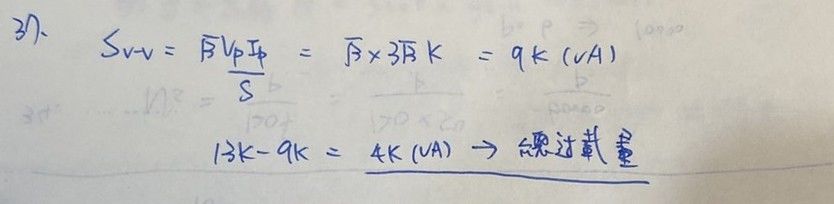 37.
S_{V-V} = √3 V_P I_P = √3 × 3√3 K = 9K (VA)
S
13K - 9K = 4K (VA) → 總過載量